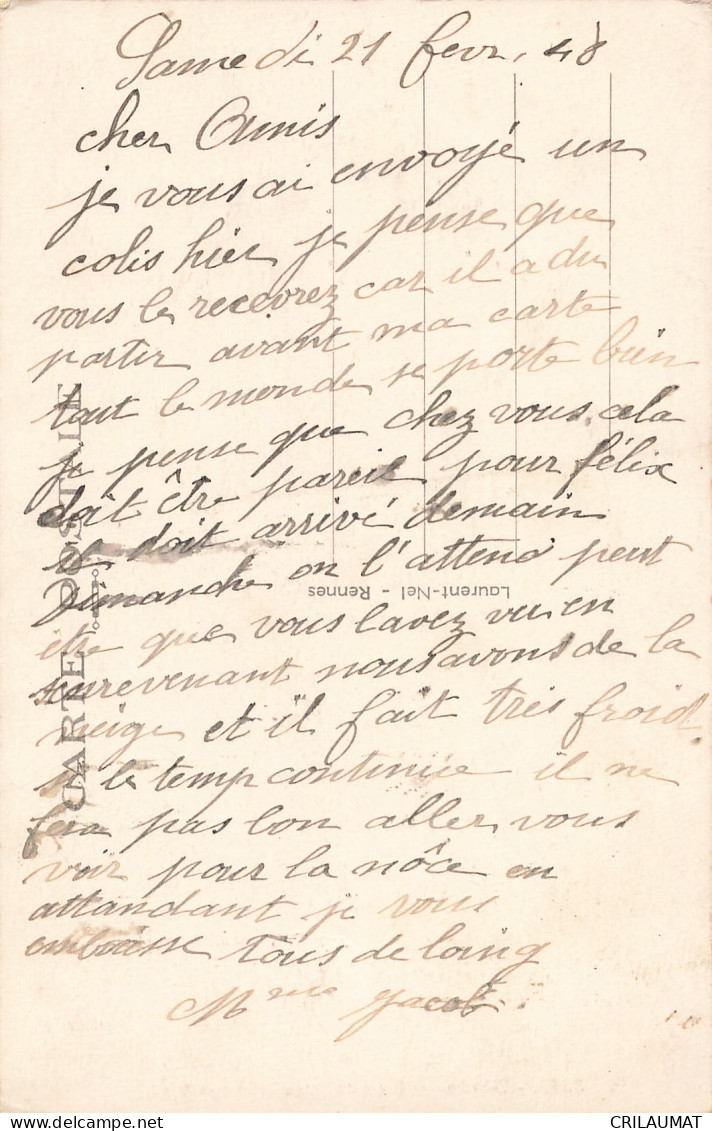 Samedi 21 fevr. 48
cher Amis
je vous ai envoyé un
colis hier je pense que
vous le recevrez car il a du
partir avant ma carte
tout le monde se porte bien
je pense que chez vous cela
doit être pareil pour félix
il doit arrivé demain
Dimanche on l'attend peut
être que vous lavez vu en
revenant nous avons de la
neige et il fait très froid
si le temp continue il ne
fera pas bon aller vous
voir pour la nôce en
attandant je vous
embrasse tous de loing
Mme Jacob
CARTE POSTALE
Laurent-Nel - Rennes
CRILAUMAT